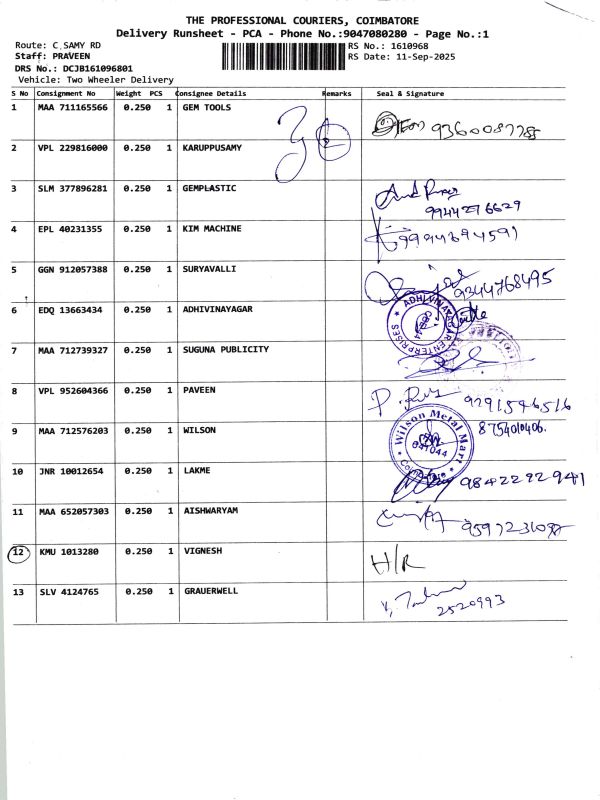 THE PROFESSIONAL COURIERS, COIMBATORE
Delivery Runsheet - PCA - Phone No.:9047080280 - Page No.:1
Route: C SAMY RD RS No.: 1610968
Staff: PRAVEEN RS Date: 11-Sep-2025
DRS No.: DCJB161096801
Vehicle: Two Wheeler Delivery
S No Consignment No Weight PCS Consignee Details Remarks Seal & Signature
1 MAA 711165566 0.250 1 GEM TOOLS
2 VPL 229816000 0.250 1 KARUPPUSAMY
3 SLM 377896281 0.250 1 GEMPLASTIC
9944276629
4 EPL 40231355 0.250 1 KIM MACHINE
9994694591
5 GGN 912057388 0.250 1 SURYAVALLI 9344768495
6 EDQ 13663434 0.250 1 ADHIVINAYAGAR ADHIVINAYAGAR ENTERPRISES
7 MAA 712739327 0.250 1 SUGUNA PUBLICITY
8 VPL 952604366 0.250 1 PAVEEN 9291546516
9 MAA 712576203 0.250 1 WILSON Wilson Metal Mart 641044
10 JNR 10012654 0.250 1 LAKME 9842292941
11 MAA 652057303 0.250 1 AISHWARYAM
12 KMU 1013280 0.250 1 VIGNESH H/R
13 SLV 4124765 0.250 1 GRAUERWELL
2520993